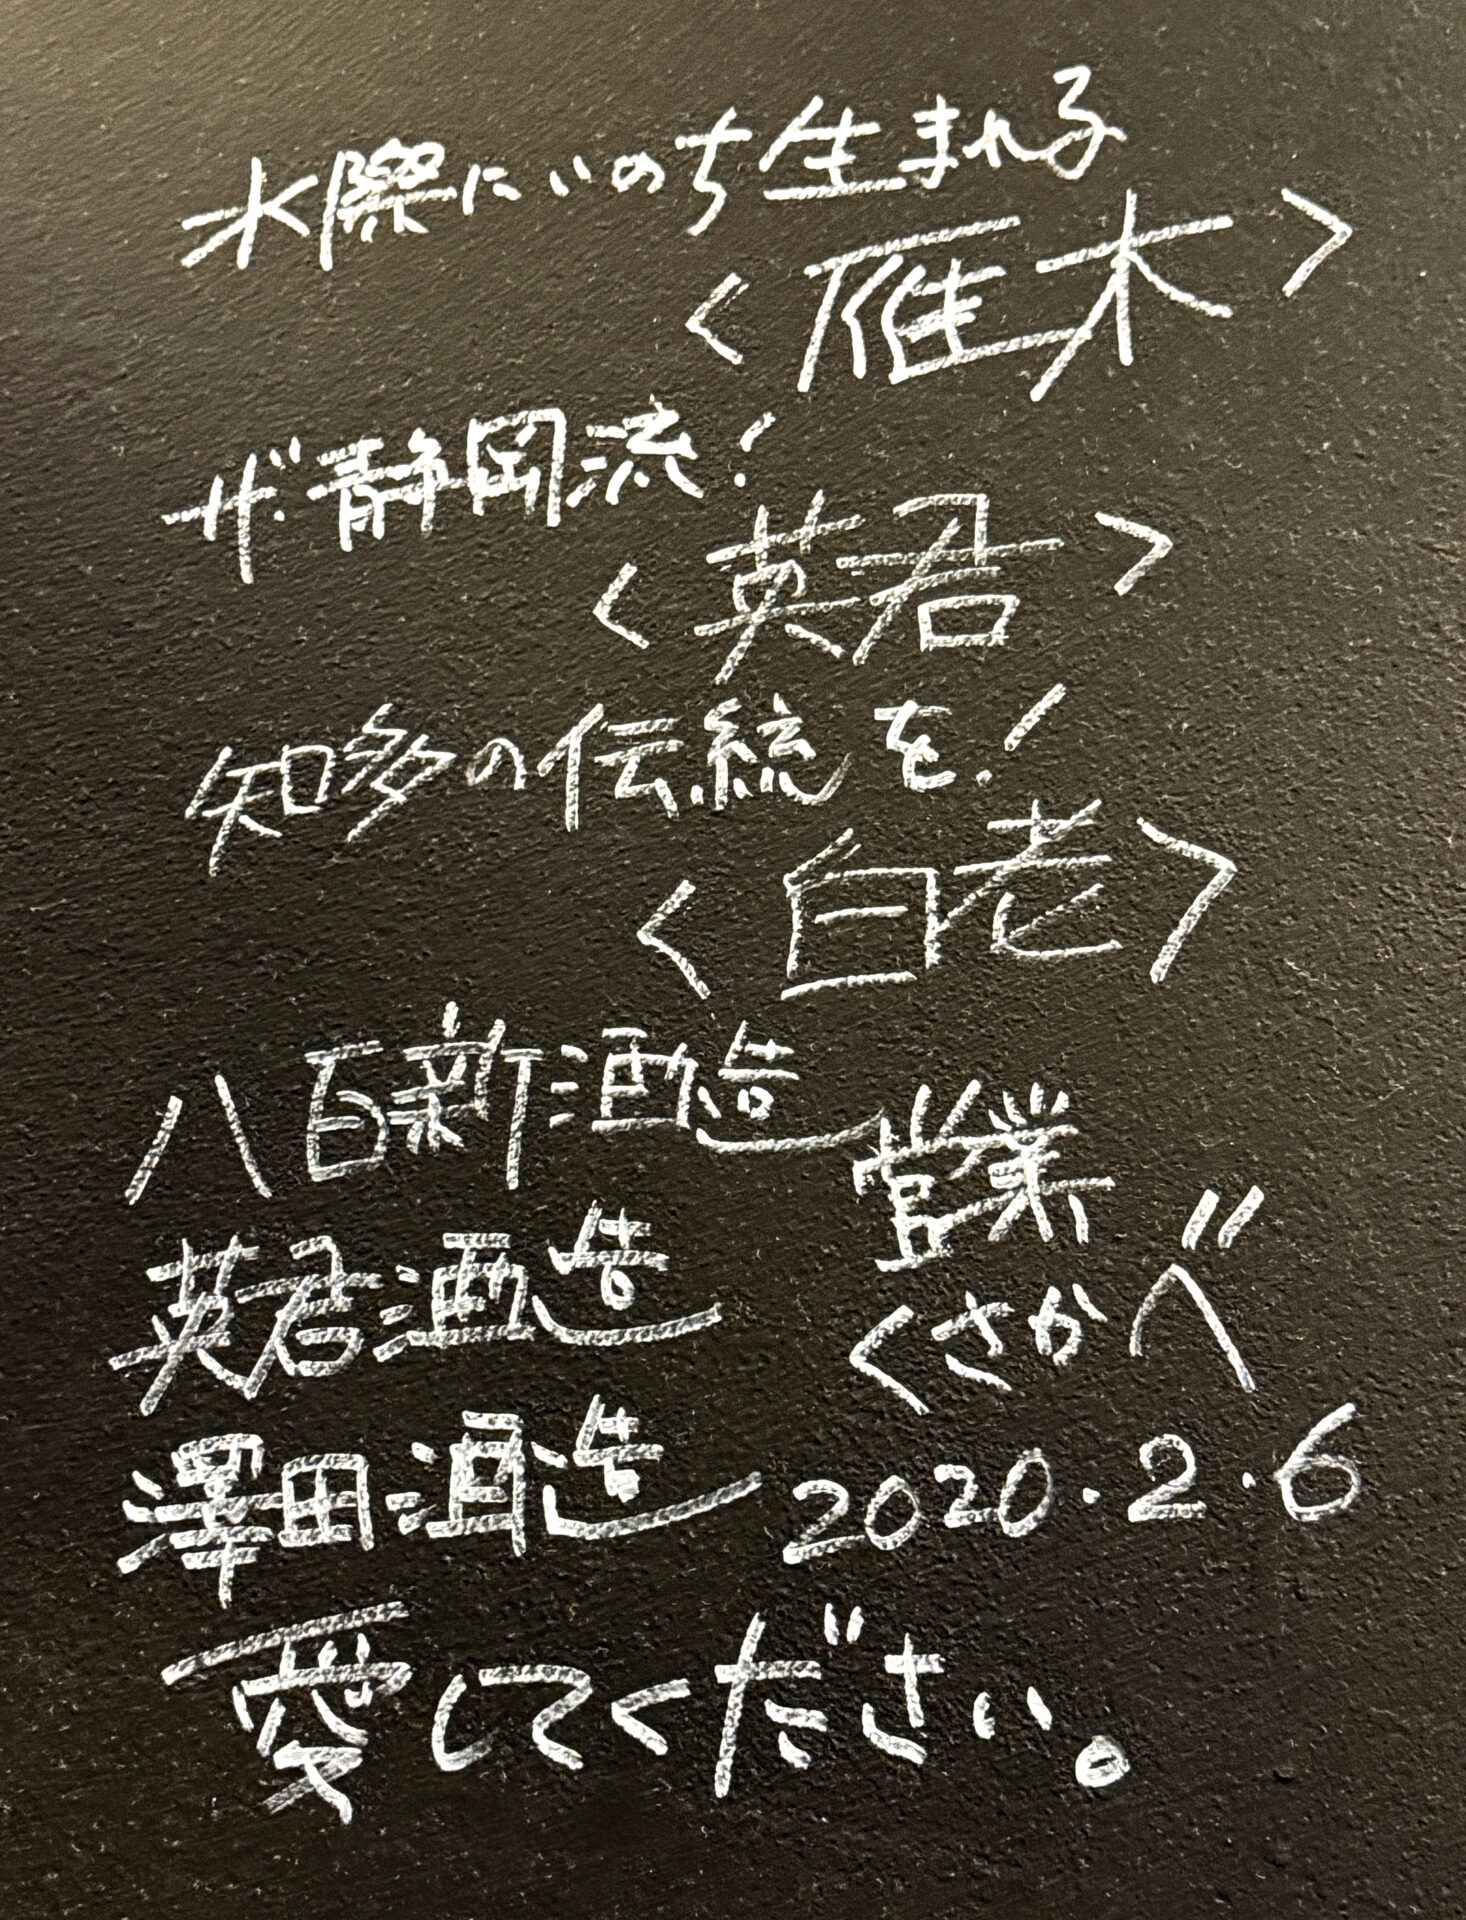 水際にいのち生まれる
<雁木>
ザ・静岡流!
<英君>
知多の伝統を!
<白老>
八百新酒造
英君酒造
澤田酒造
営業
くさかべ
2020.2.6
愛してください。